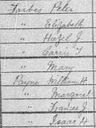 Forbes Peter
" Elizabeth
" Hazel J
" Carrie J
" Mary
Payne William H
" Margaret
" Frances J
" Isaac H